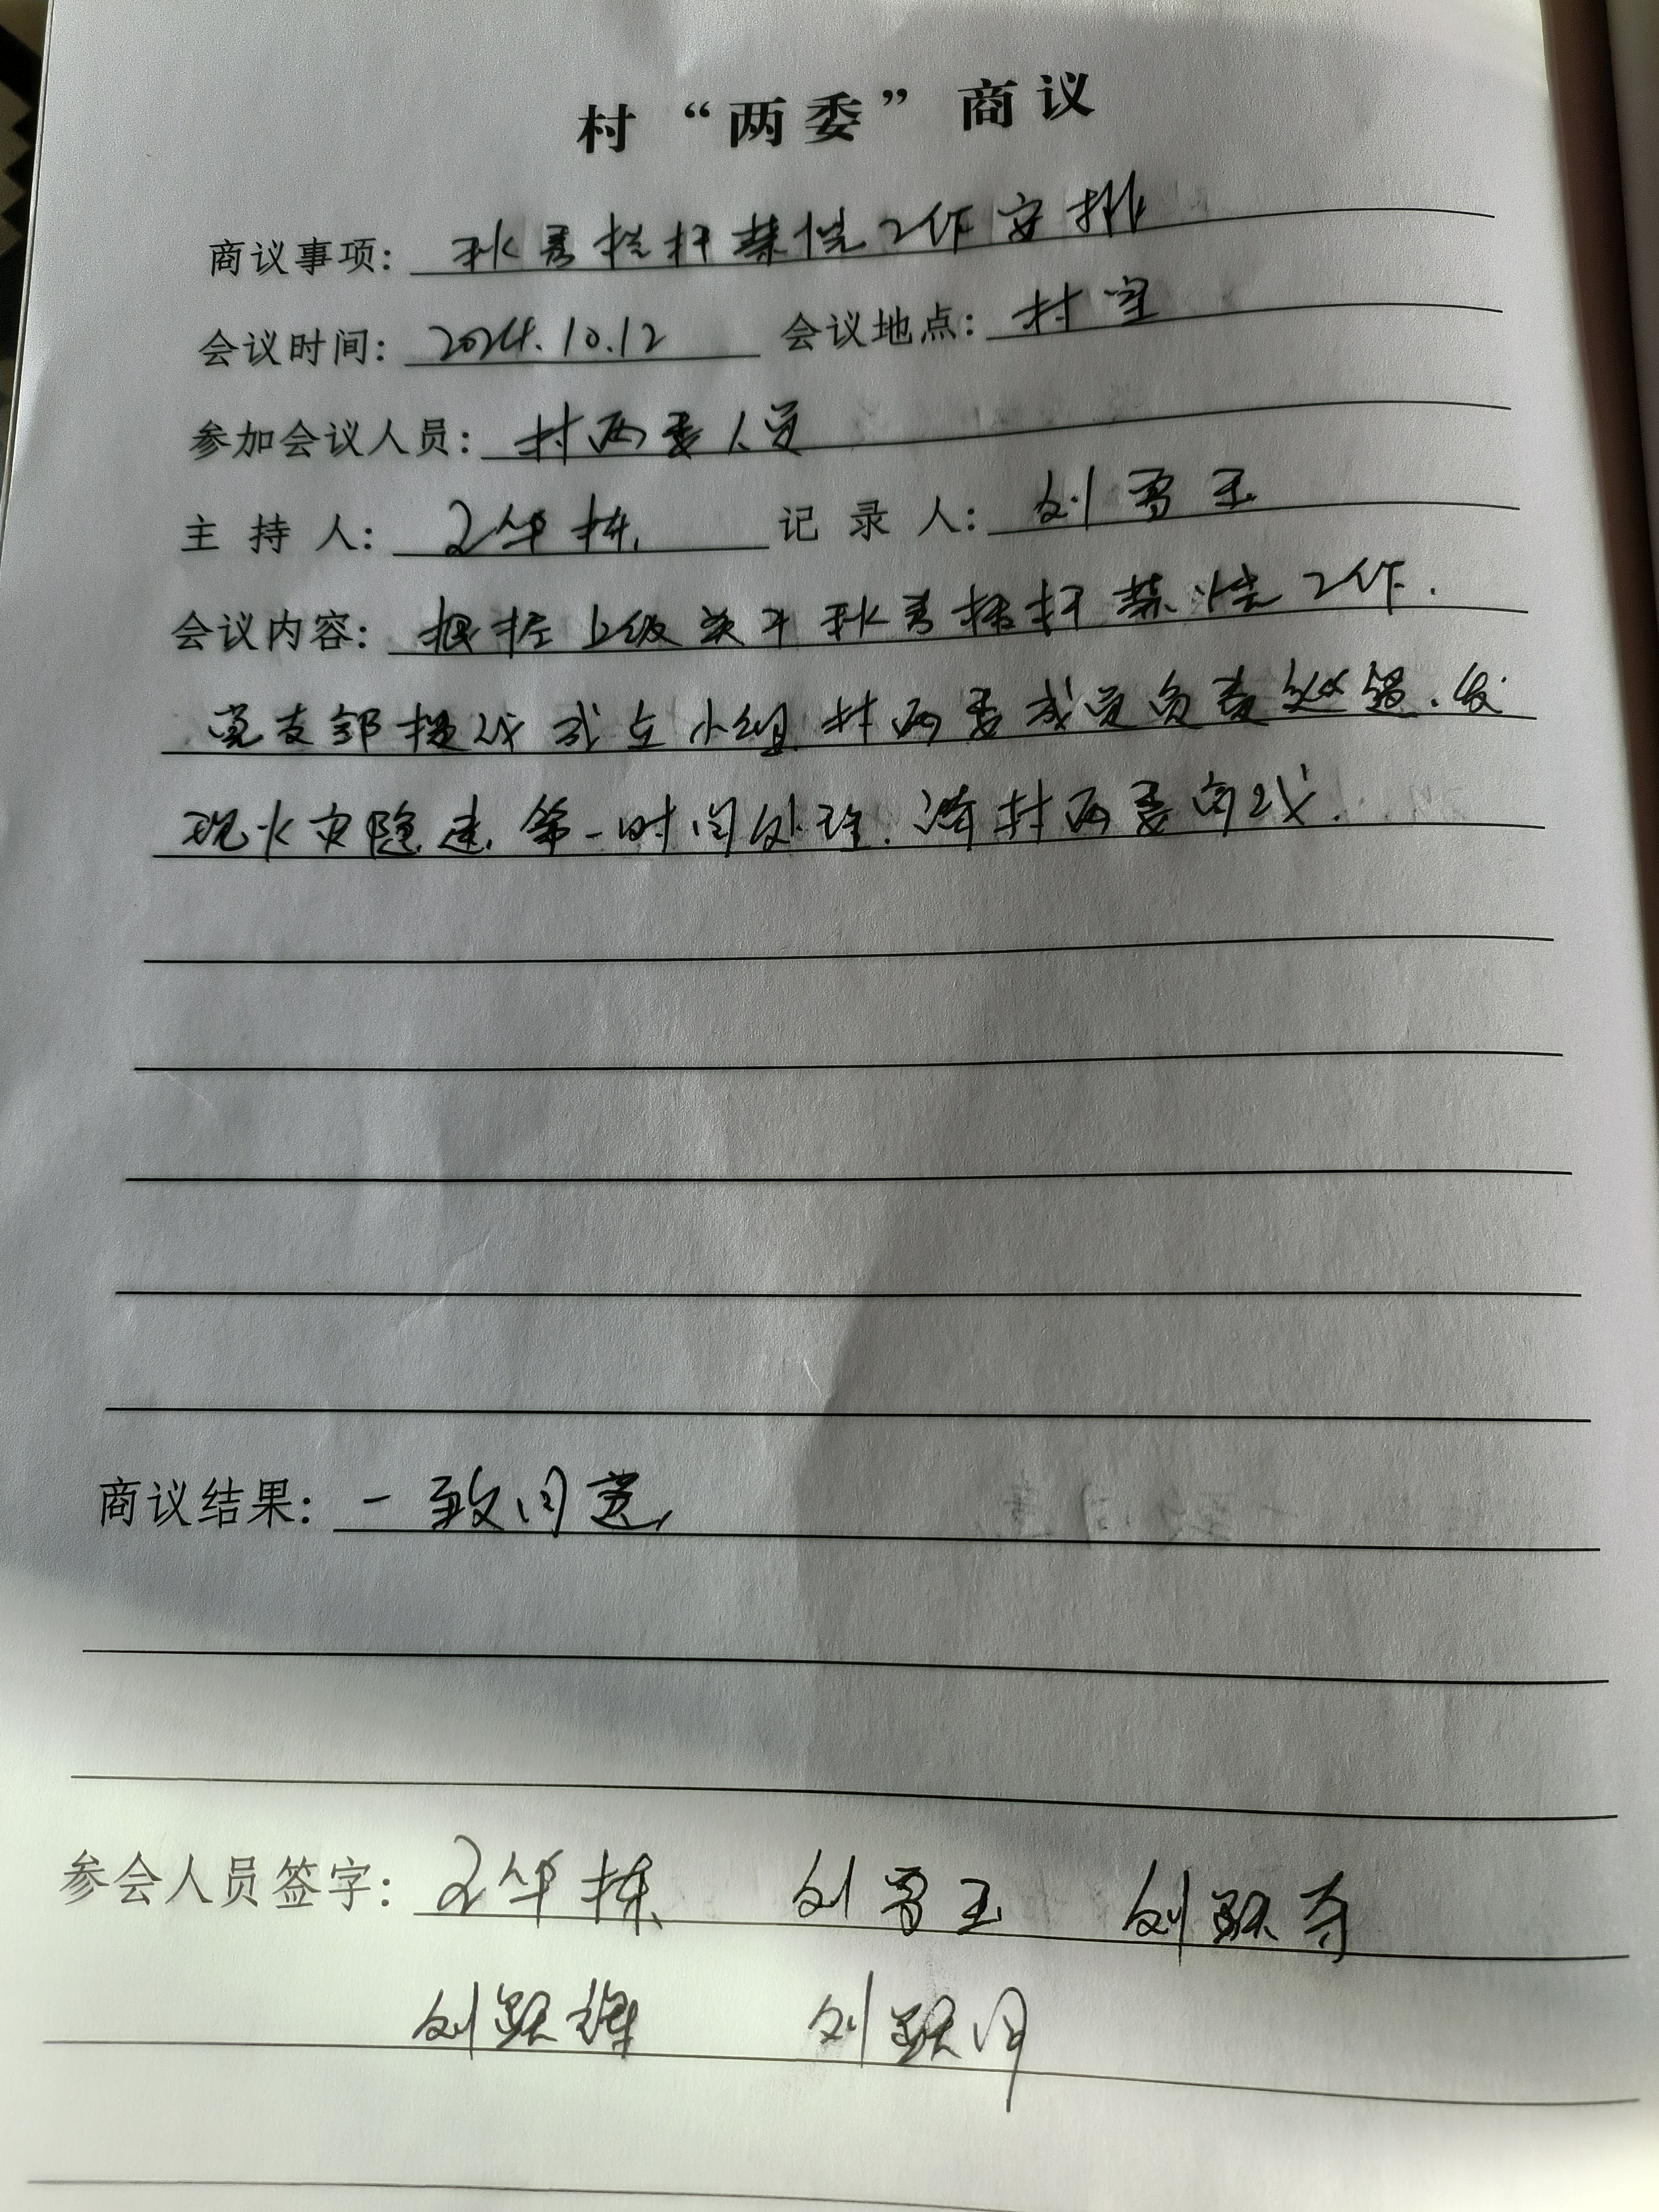 村“两委”商议
商议事项：秋季秸秆禁烧工作安排
会议时间：2024.10.12 会议地点：村室
参加会议人员：村两委人员
主持人：王华栋 记录人：刘雪玉
会议内容：根据上级关于秋季秸秆禁烧工作.
党支部提议成立小组 村两委成员负责巡逻.发
现火灾隐患 第一时间处理.请村两委商议.
商议结果：一致同意
参会人员签字：王华栋 刘雪玉 刘跃
刘跃 刘跃